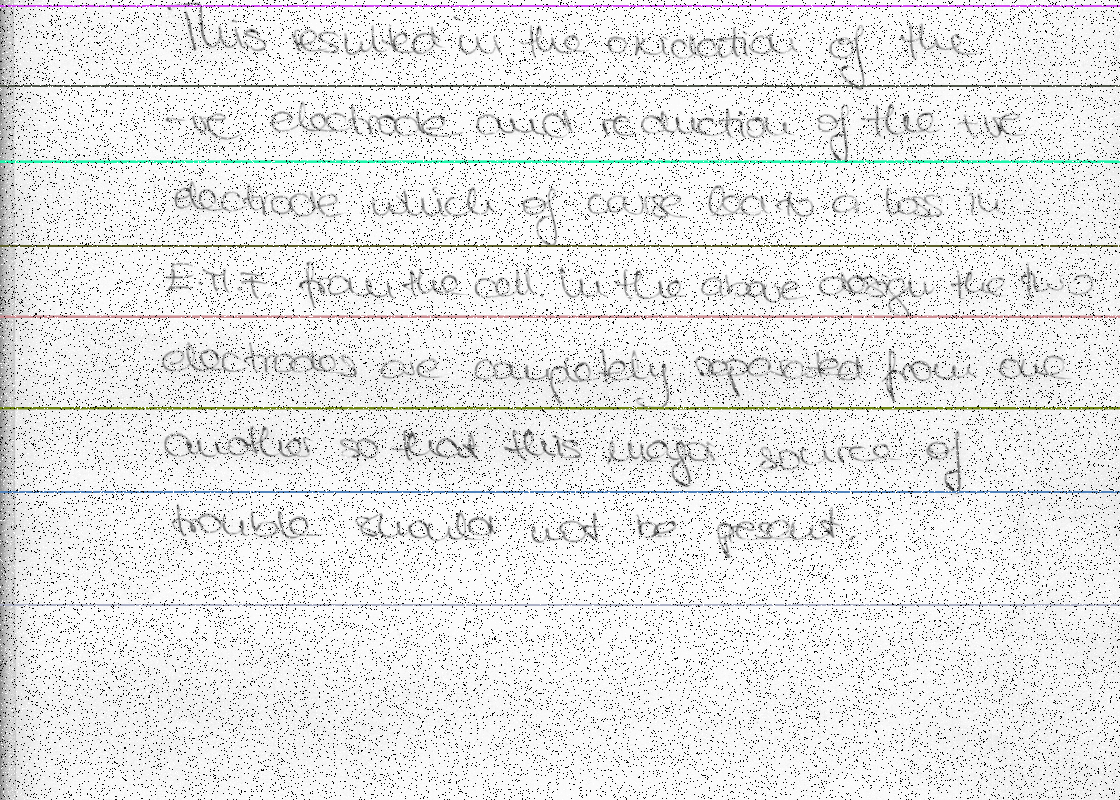 This resulted in the oxidation of the
-ve electrode and reduction of the +ve
electrode which of corse leads to a loss in
EMF from the cell. In the above design the two
electrodes are completely seperated from one
another so that this major source of
trouble should not be pesent.